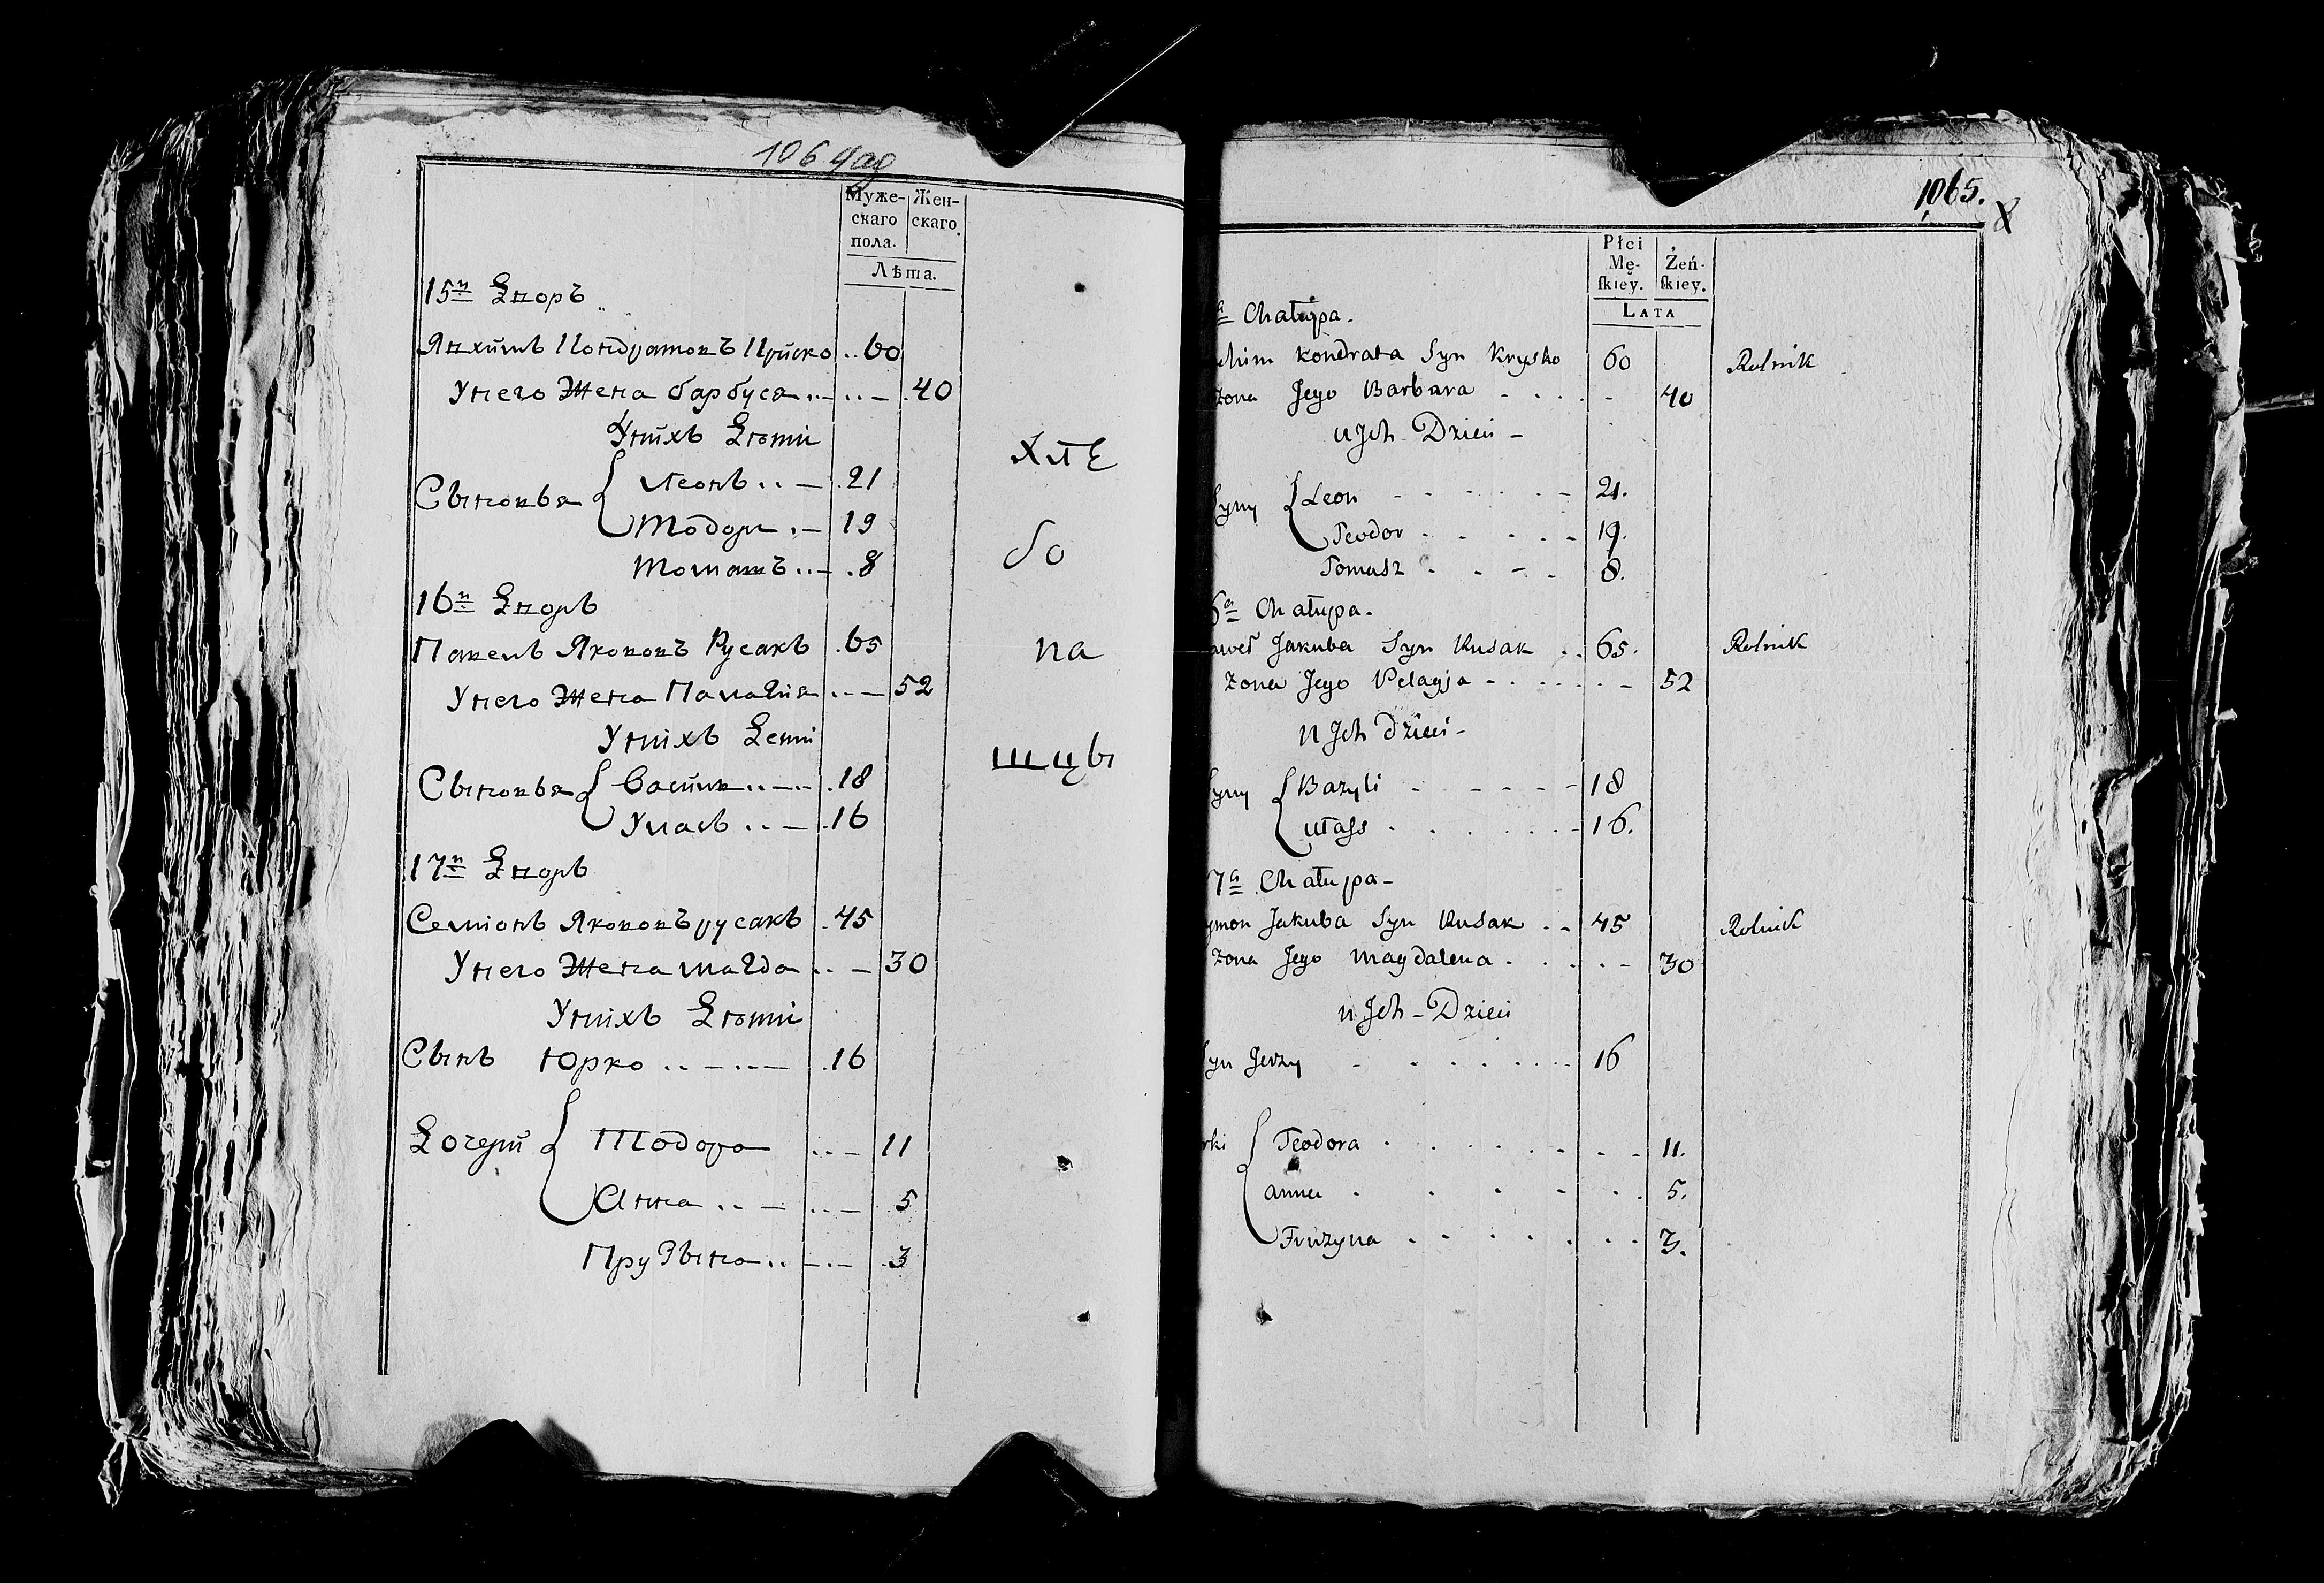 1064об
Муже-
скаго
пола.
Жен-
скаго.
Лѣта.
15й Дворъ
Яхимъ Кондратовъ Криско .. 60
У него Жена барбуся .. — .. — 40
У нихъ Дѣти
Сыновья { Леонъ .. — 21
Тодоръ . — 19
Томашъ .. — 8
16й Дворъ
Павелъ Якововъ Русакъ 65
У него Жена Палагия .. — 52
У нихъ Дети
Сыновья { Василь .. — .. 18
Уласъ .. — 16
17й Дворъ
Семіонъ Якововъ русакъ 45
У него Жена магда .. — 30
У нихъ Дѣти
Сынъ Юрко .. — .. — 16
Дочери { Тодора .. — 11
Анна .. — .. — 5
Прузына .. — . — 3
хле
бо
па
шцы
1065.
8
Płci
Mę-
skiey.
Żeń-
skiey.
LATA
a Chałupa.
chim Kondrata Syn Krysko 60 Rolnik
żona Jego Barbara . . . . - 40
u Jch - Dzieci -
Syny { Leon - - - - - - 21.
Teodor . - . . - 19.
Tomasz - . - . 8.
6a Chałupa.
aweł Jakuba Syn Rusak . . 65. Rolnik
żona Jego Pelagja - . . . . . - 52
u Jch Dzieci -
Syny { Bazyli - - - - - 18
Ułass . . . . . . - 16.
7a Chałupa -
ymon Jakuba Syn Rusak . . 45 Rolnik
żona Jego Magdalena . . . . - 30
u Jch - Dzieci
Syn Jerzy - . . . . . 16
rki { Teodora . . . . - . - 11.
anna . . . - . . 5.
Fruzyna . . . . . . . 3.